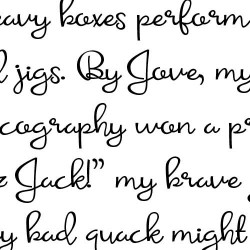 avy boxes perform
jigs. By Jove, my
cography won a pr
Jack!” my brave
bad quack might